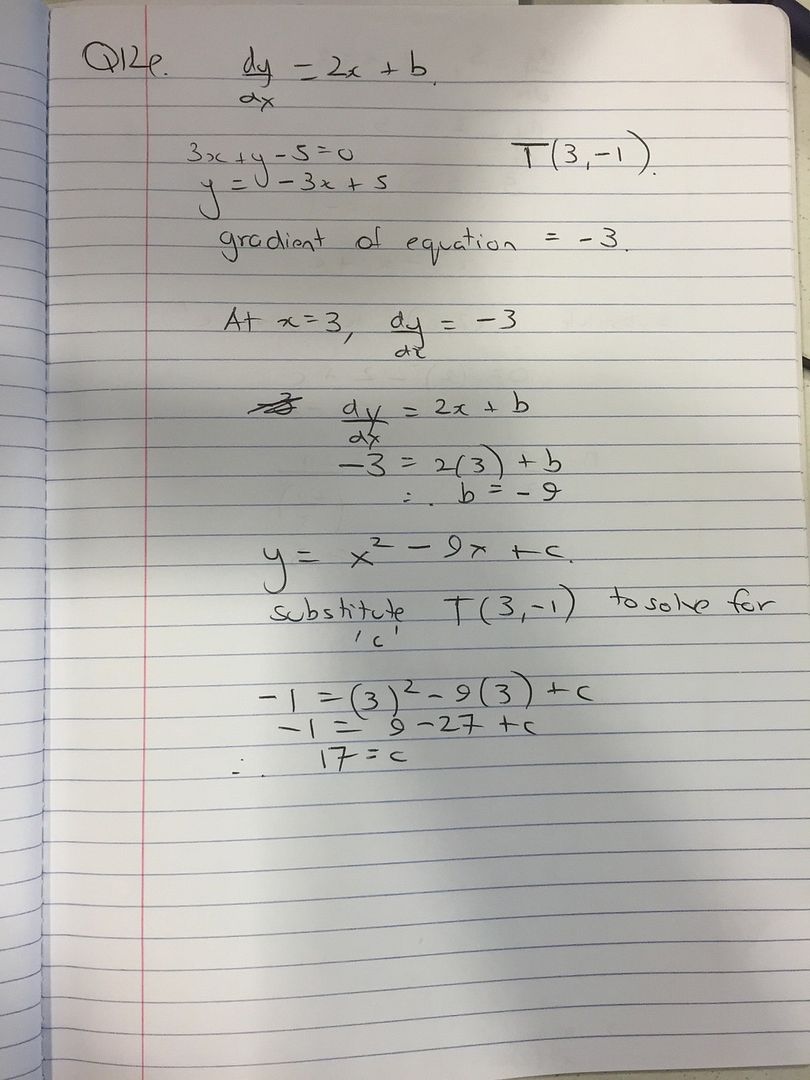 Q12e. dy/dx = 2x + b.
3x + y - 5 = 0 T(3, -1).
y = -3x + 5
gradient of equation = -3.
At x = 3, dy/dx = -3
dy/dx = 2x + b
-3 = 2(3) + b
∴ b = -9
y = x² - 9x + c.
substitute T(3, -1) to solve for
'c'
-1 = (3)² - 9(3) + c
-1 = 9 - 27 + c
∴ 17 = c